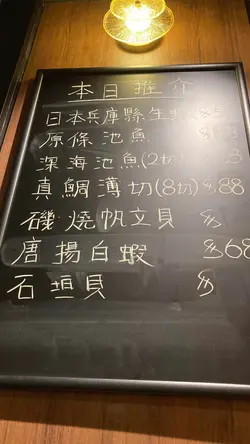 本日推介
日本兵庫縣生
原條池魚
深海池魚(2切)
真鯛薄切(8切) $88
磯燒帆立貝 $
唐揚白蝦 $68
石垣貝 $